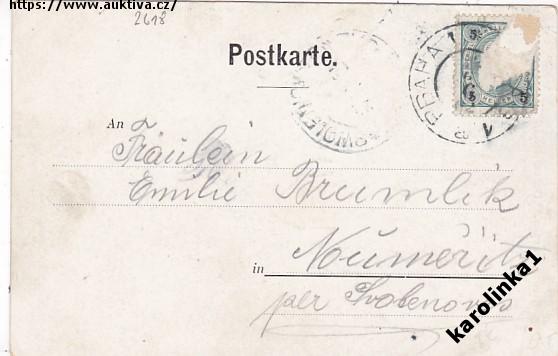 https://www.auktiva.cz/
2618
Postkarte.
PRAHA 1
5
5 5
An
Fräulein
Emilie Brumlik
in
per
karolinka1